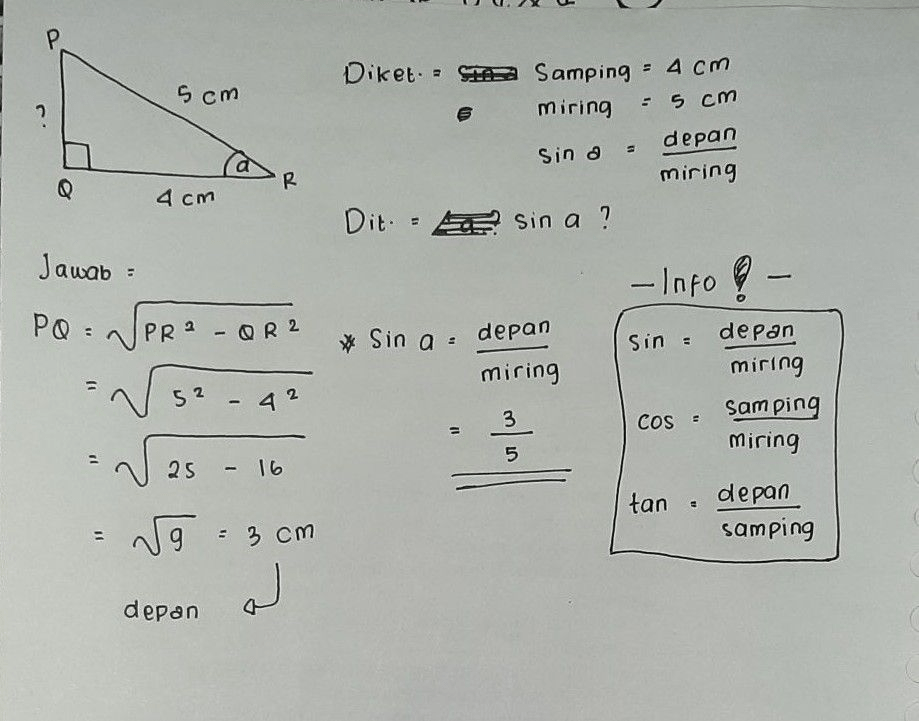 P
5 cm
?
a
Q
R
4 cm
Diket. = Samping = 4 cm
miring = 5 cm
sin a = depan
miring
Dit. = sin a ?
Jawab =
PQ = √PR² - QR²
= √5² - 4²
= √25 - 16
= √9 = 3 cm
depan
* Sin a = depan
miring
= 3
5
- Info ! -
sin = depan
miring
cos = samping
miring
tan = depan
samping